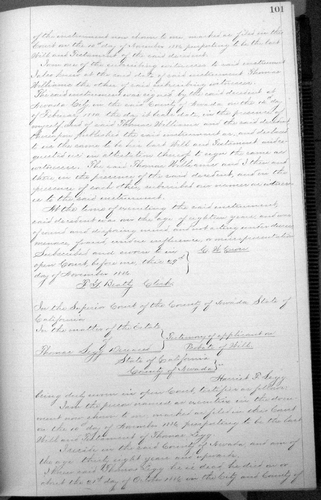 101
of the instrument now shown to me marked as filed in this
Court on the 10th day of November 1886 purporting to be the last
Will and Testament of the said deceased.
I am one of the subscribing witnesses to said instrument
I also knew at the said date of said instrument Thomas
Williams the other of said subscribing witnesses
The said instrument was signed by the said decedent at
Nevada City in the said County of Nevada on the
day of February 18 the day it bears date, in the presence of
myself and of said Thomas Williams and the said decedent
thereupon published the said instrument as, and declared
to us the same to be his last Will and Testament and re-
quested us in attestation thereof to sign the same as
witnesses. The said Thomas Williams and I then and
there, in the presence of the said decedent, and in the
presence of each other subscribed our names as witnesses
to the said instrument.
At the time of executing the said instrument,
said decedent was over the age of eighteen years, and was
of sound and disposing mind and not acting under duress
menace, fraud, undue influence, or misrepresentation
Subscribed and sworn to in
open Court, before me this 29th
day of November 1886
F. G. Beatty Clerk
In the Superior Court of the County of Nevada State of
California
In the matter of the Estate
of
Thomas Legg Deceased
Testimony of applicant on
Probate of Will
State of California
County of Nevada
Harriet P. Legg
being duly sworn in open Court, testifies as follows:
I am the person named as executrix in the docu-
ment now shown to me marked as filed in this Court
on the 10th day of November 1886, purporting to be the last
Will and Testament of Thomas Legg
I reside in the said County of Nevada and am of
the age of years and upwards.
I knew said Thomas Legg, he is dead he died on or
about the day of October 1886, in the City and County of